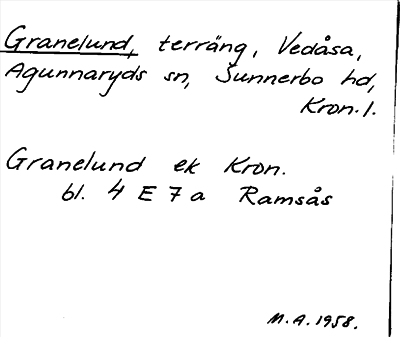 Granelund, terräng, Vedåsa,
Agunnaryds sn, Sunnerbo hd,
Kron. l.
Granelund ek Kron.
bl. 4 E 7 a Ramsås
M.A. 1958.